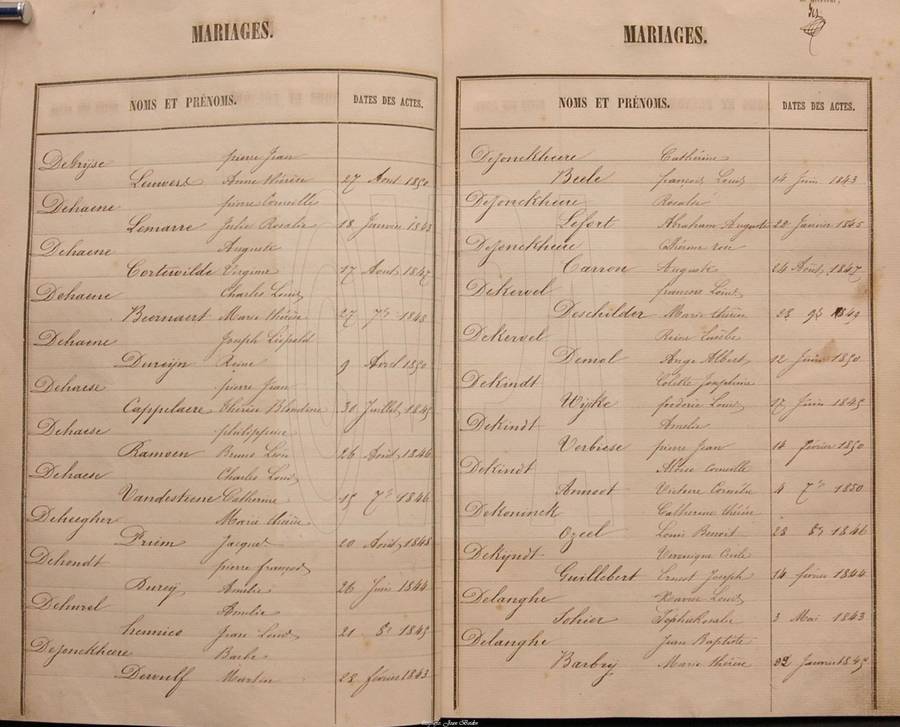 MARIAGES.
NOMS ET PRÉNOMS. DATES DES ACTES.
DeGrijse pierre Jean
Leuwers Anne thérèse 27 Aout 1850
Dehaene pierre Corneille
Lemarre Julie Rosalie 18 Janvier 1843
Dehaene Auguste
Cortewilde Virginie 17 Aout 1847
Dehaene Charles Louis
Beernaert Marie thérèse 27 7bre 1848
Dehaene Joseph Léopold
Dureijn Reine 9 Avril 1850
Dehaese pierre Jean
Cappelaere thérèse Blandine 30 Juillet 1845
Dehaese philippine
Ramoen Bruno Léon 26 Août 1846
Dehaese Charles Louis
Vandestiene Catherine 15 7bre 1846
Deheegher Marie thérèse
Priem Jacques 20 Août 1848
Dehondt pierre françois
Burey Amélie 26 Juin 1844
Dehurel Amélie
hennico Jean Louis 21 8re 1845
DeJonckheere Barbe
Dewulf Martin 28 février 1843
MARIAGES.
NOMS ET PRÉNOMS. DATES DES ACTES.
DeJonckheere Cathérine
Beele françois Louis 14 Juin 1843
DeJonckheere Rosalie
Lefort Abraham Auguste 22 Janvier 1845
DeJonckheere
Carron Auguste 24 Août 1847
DeKervel françois Louis
Deschilder Marie thérèse 28 9re 1849
DeKervel Reine
Demol Ange Albert 12 Juin 1850
DeKindt Colette Joséphine
Wijtke frederic Louis 17 Juin 1845
DeKindt Amélie
Verbiese pierre Jean 14 février 1850
DeKindt Corneille
Annoot 4 7bre 1850
DeKoninck Catherine thérèse
Ozeel Louis Benoit 28 8re 1846
DeKyndt Véronique
Guillebert Ernest Joseph 14 février 1844
Delanghe Xavier Louis
Sohier Sophie Rosalie 3 Mai 1843
Delanghe Jean Baptiste
Barbry Marie thérèse 22 Janvier 1845